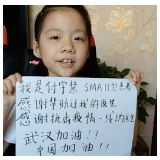 我是付宇慧 SMAII型患者
感谢帮助过我的医生
感谢抗击疫情一线的医生
武汉加油！！
中国加油！！